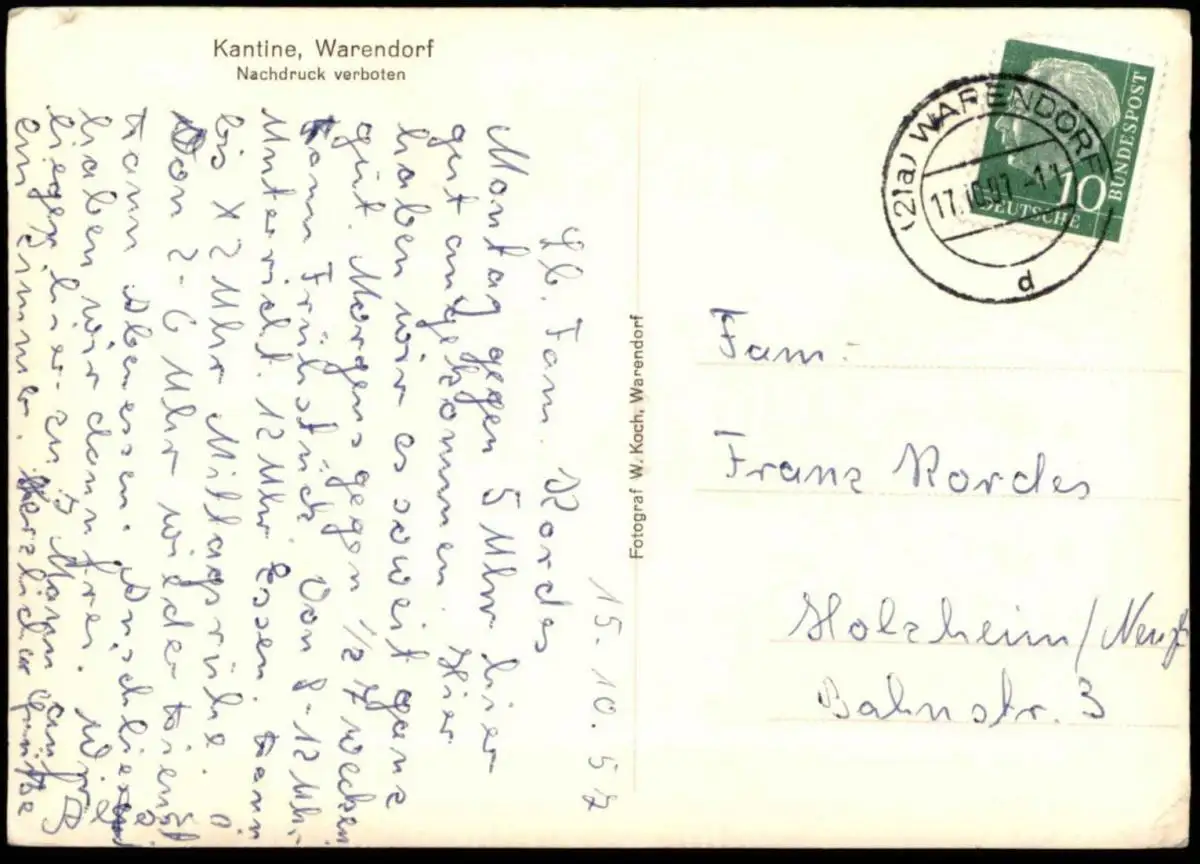 Kantine, Warendorf
Nachdruck verboten
15.10.57
Lb. Fam. Kordes
Montag gegen 5 Uhr hier
gut angekommen. Hier
haben wir es soweit ganz
gut. Morgens gegen 1/2 7 wecken
tann Frühstück. Von 8-12 Uhr
Unterricht. 12 Uhr Essen. tann
bis 2 Uhr Mittagsrühe.
Von 2-6 Uhr wieder Dienst
tann Abenessen. Anschliesend
haben wir dann frei. Wir
liegen hier zu 3 Mann auf
ein Zimmer. Herzliche Grüße
Fotograf W. Koch, Warendorf
(21a) WARENDORF
17.10.57.-11
d
10
DEUTSCHE
BUNDESPOST
Fam.
Franz Kordes
Holzheim/
Bahnstr. 3